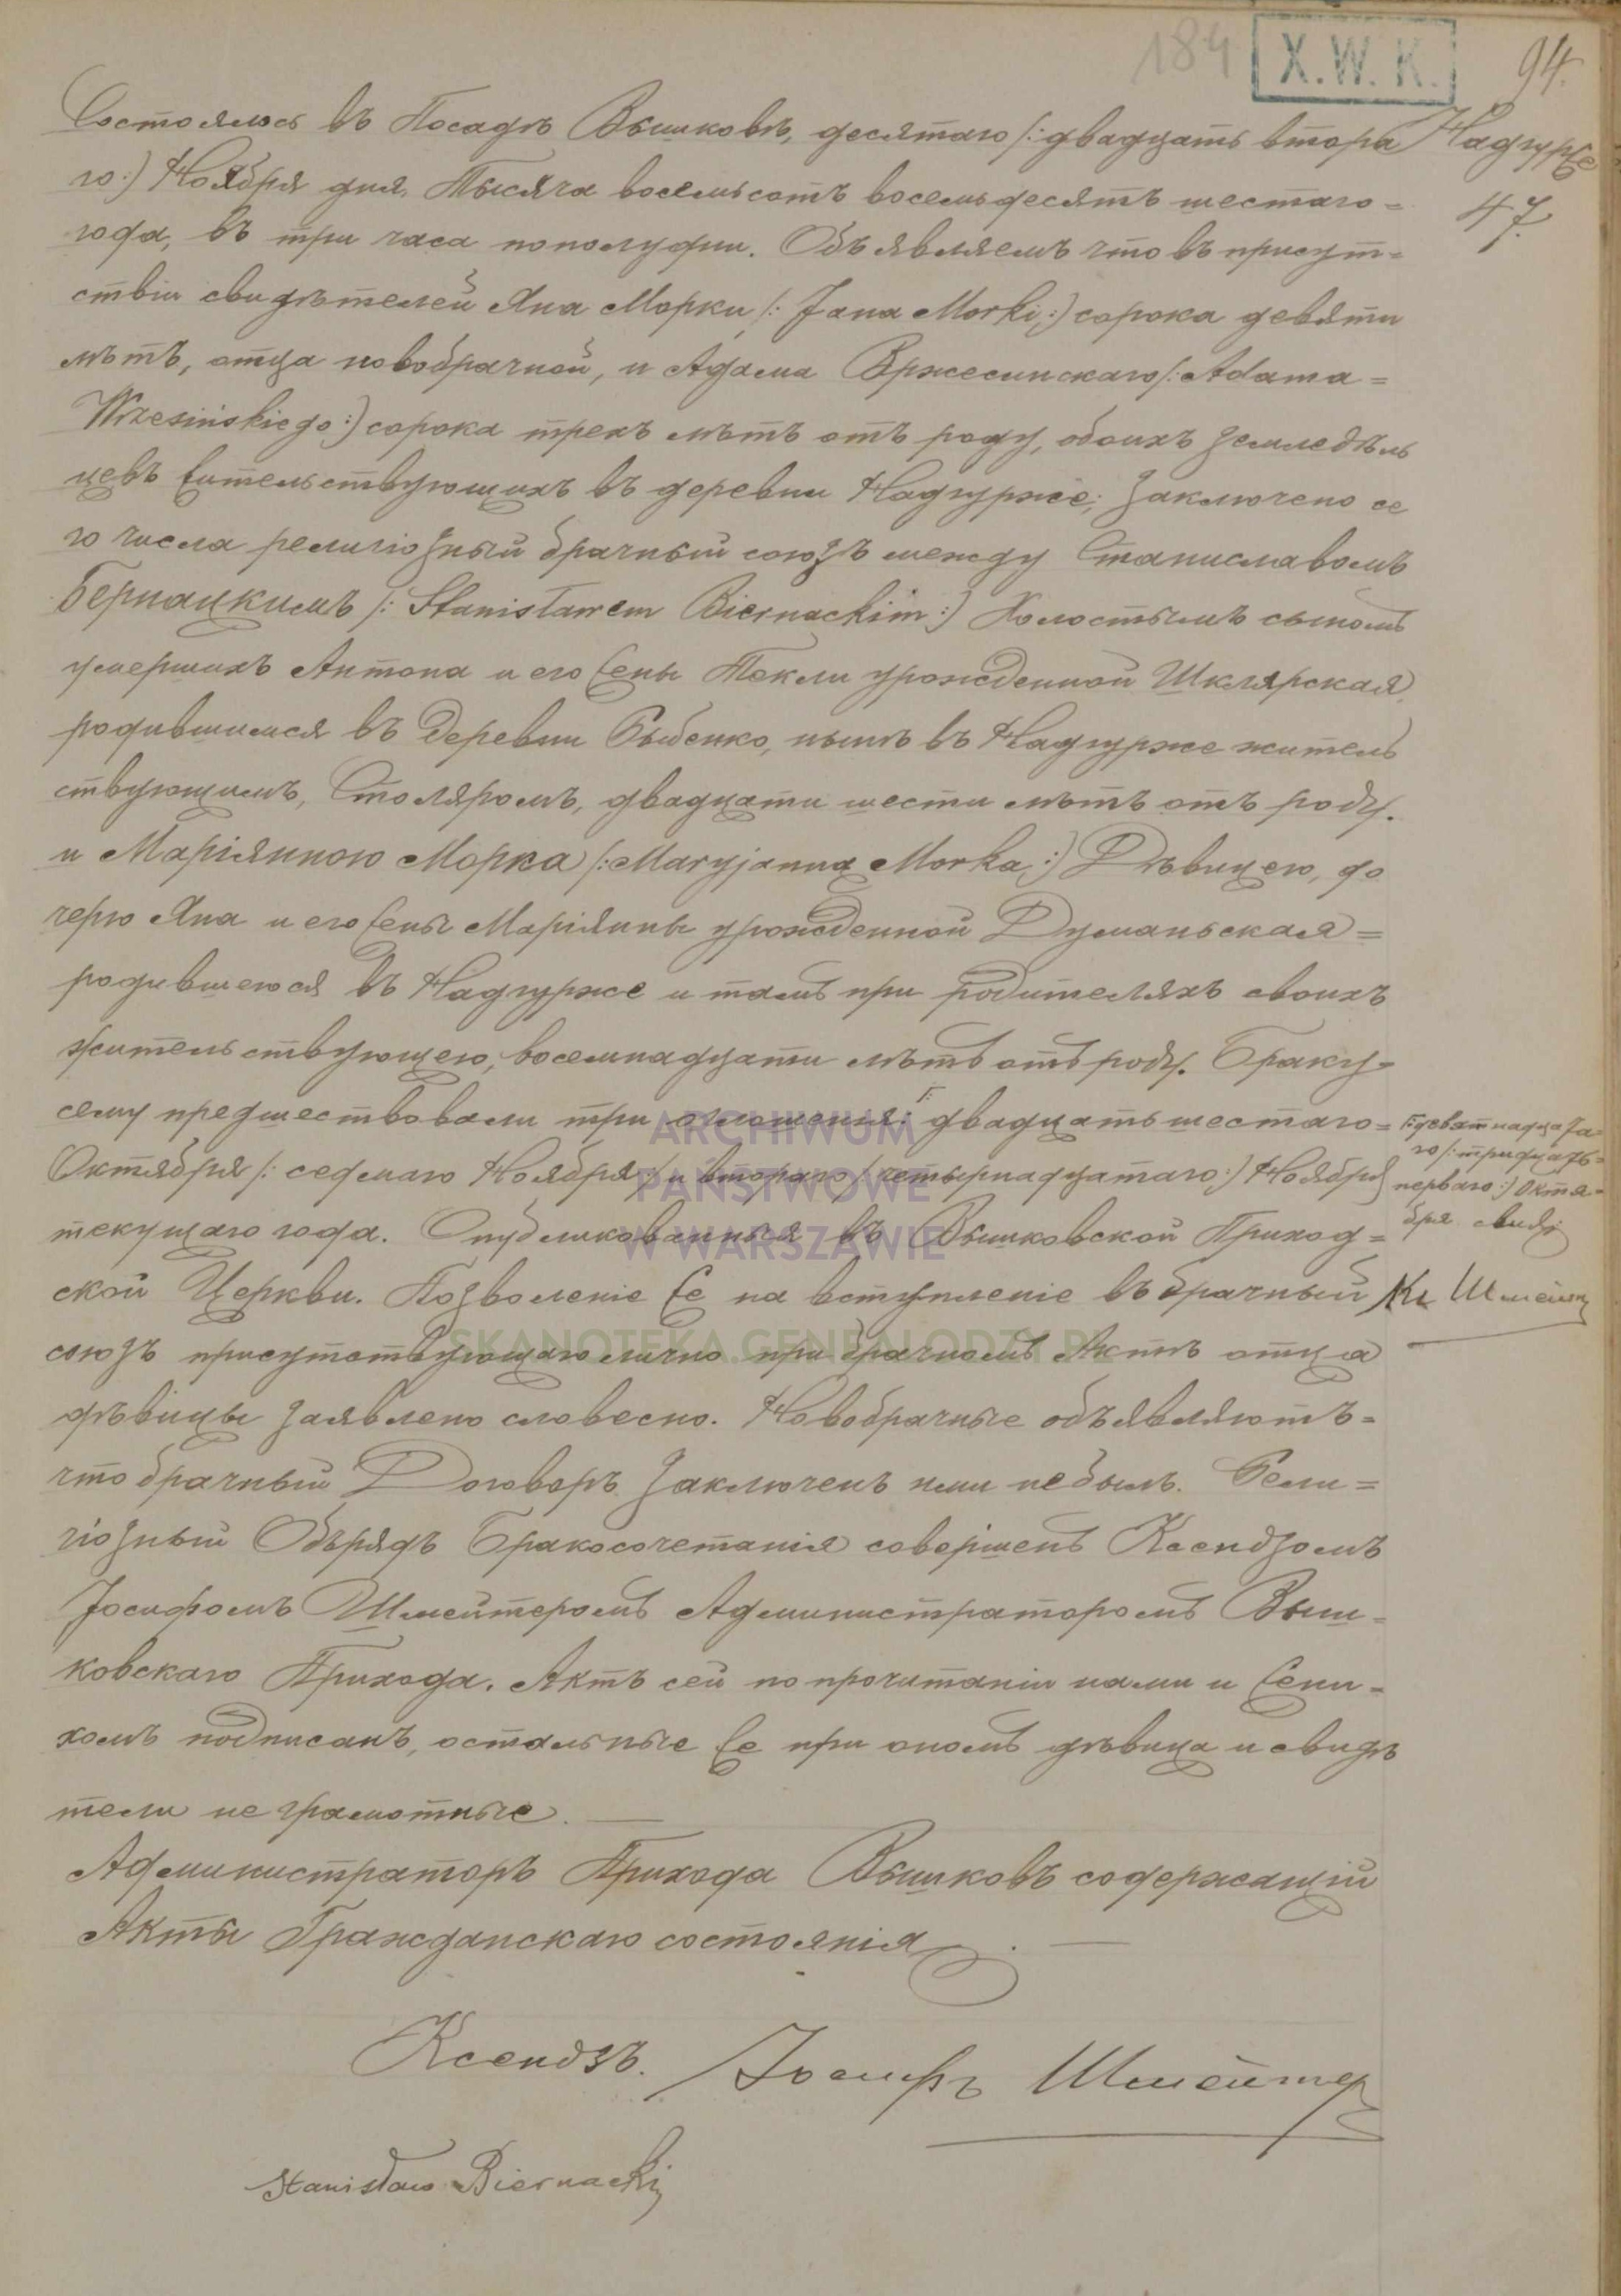 184
X.W.K.
94.
Надгурже
47.
Состоялось въ Посадѣ Вышковѣ, десятаго /: двадцать втора
го :/ Ноября дня, Тысяча восемьсотъ восемьдесятъ шестаго =
года, въ три часа пополудни. Объявляемъ что въ присут=
ствіи свидѣтелей Яна Морки /: Jana Morki :/ сорока девяти
лѣтъ, отца новобрачной, и Адама Вржесинскаго /: Adama =
Wrzesińskiego :/ сорока трехъ лѣтъ отъ роду, обоихъ земледѣль
цевъ жительствующихъ въ деревни Надгурже; заключено се
го числа религіозный брачный союзъ между Станиславомъ
Бернацкимъ /: Stanisławem Biernackim :/ Холостымъ сыномъ
умершихъ Антона и его жены Текли урожденной Шклярская,
родившимся въ Деревни Рыбенко, нынѣ въ Надгурже житель
ствующимъ, Столяромъ, двадцати шести лѣтъ отъ роду.
и Маріянною Морка /: Maryjanną Morka :/ Дѣвицею, до
черю Яна и его жены Маріянны урожденной Думаньская =
родившеюся въ Надгурже и тамъ при родителяхъ своихъ
жительствующею, восемнадцати лѣтъ отъ роду. Браку =
сему предшествовали три оглошенія: двадцать шестаго =
Октября /: седмаго Ноября :/ и втораго /: четырнадцатаго :/ Ноября
текущаго года. Опубликованныя въ Вышковской Приход =
ской Церкви. Позволеніе же на вступленіе въ брачный
союзъ присутствующаго лично при брачномъ Актѣ отца
дѣвицы заявлено словесно. Новобрачные объявляютъ =
что брачный Договоръ заключенъ ими небылъ. Рели =
гіозный Обърядъ Бракосочетанія совершенъ Ксендзомъ
Іосифомъ Шмейтеромъ Администраторомъ Выш =
ковскаго Прихода. Актъ сей по прочитаніи нами и жени =
хомъ подписанъ, остальные же при ономъ дѣвица и свидѣ
тели не грамотные.
Администраторъ Прихода Вышковъ содержащій
Акты Гражданскаго состоянія.
девятнадцата=
го /: тридцать=
перваго :/ Октя=
бря свид:
Кс. Шмейтер
Ксендзъ. Іосифъ Шмейтер
Stanisław Biernacki
ARCHIWUM
PAŃSTWOWE
W WARSZAWIE
SKANOTEKA.GENEALODZY.PL